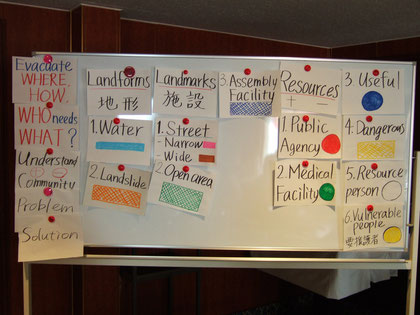 Evacuate
WHERE,
HOW.
WHO needs
WHAT?
Understand
Community
Problem
Solution
Landforms
地形
1. Water
2. Landslide
Landmarks
施設
1. Street
Narrow
Wide
2. Open area
3. Assembly
Facility
Resources
+ -
1. Public
Agency
2. Medical
Facility
3. Useful
4. Dangerous
5. Resource
person
6. Vulnerable
people
要援護者